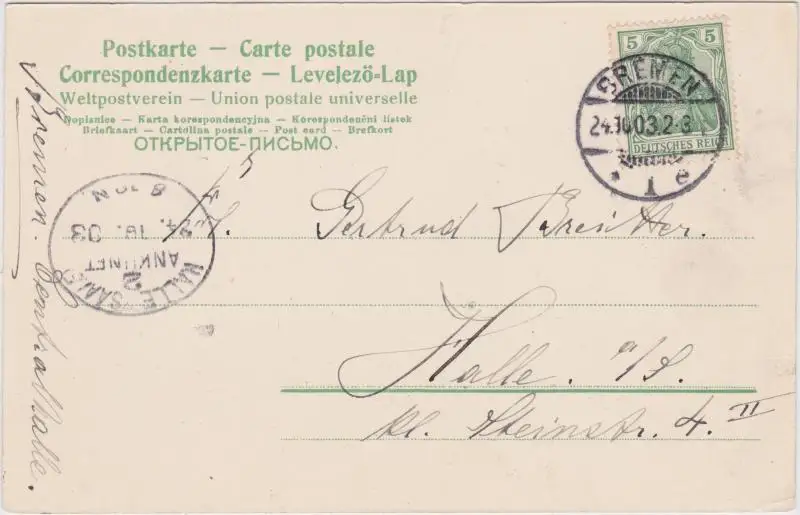 Postkarte — Carte postale
Correspondenzkarte — Levelező-Lap
Weltpostverein — Union postale universelle
Dopisnice — Karta korespondencyjna — Korespondenční listek
Briefkaart — Cartolina postale — Post card — Brefkort
ОТКРЫТОЕ-ПИСЬМО.
5 5
DEUTSCHES REICH
BREMEN
24.10.03.2-3
* 1 e
HALLE (SAALE)
2
ANKUNFT
24. 10. 03
8-10N.
Frl. Gertrud Breitter.
Halle. a/S.
kl. Steinstr. 4. II
Bremen. Centralhalle.